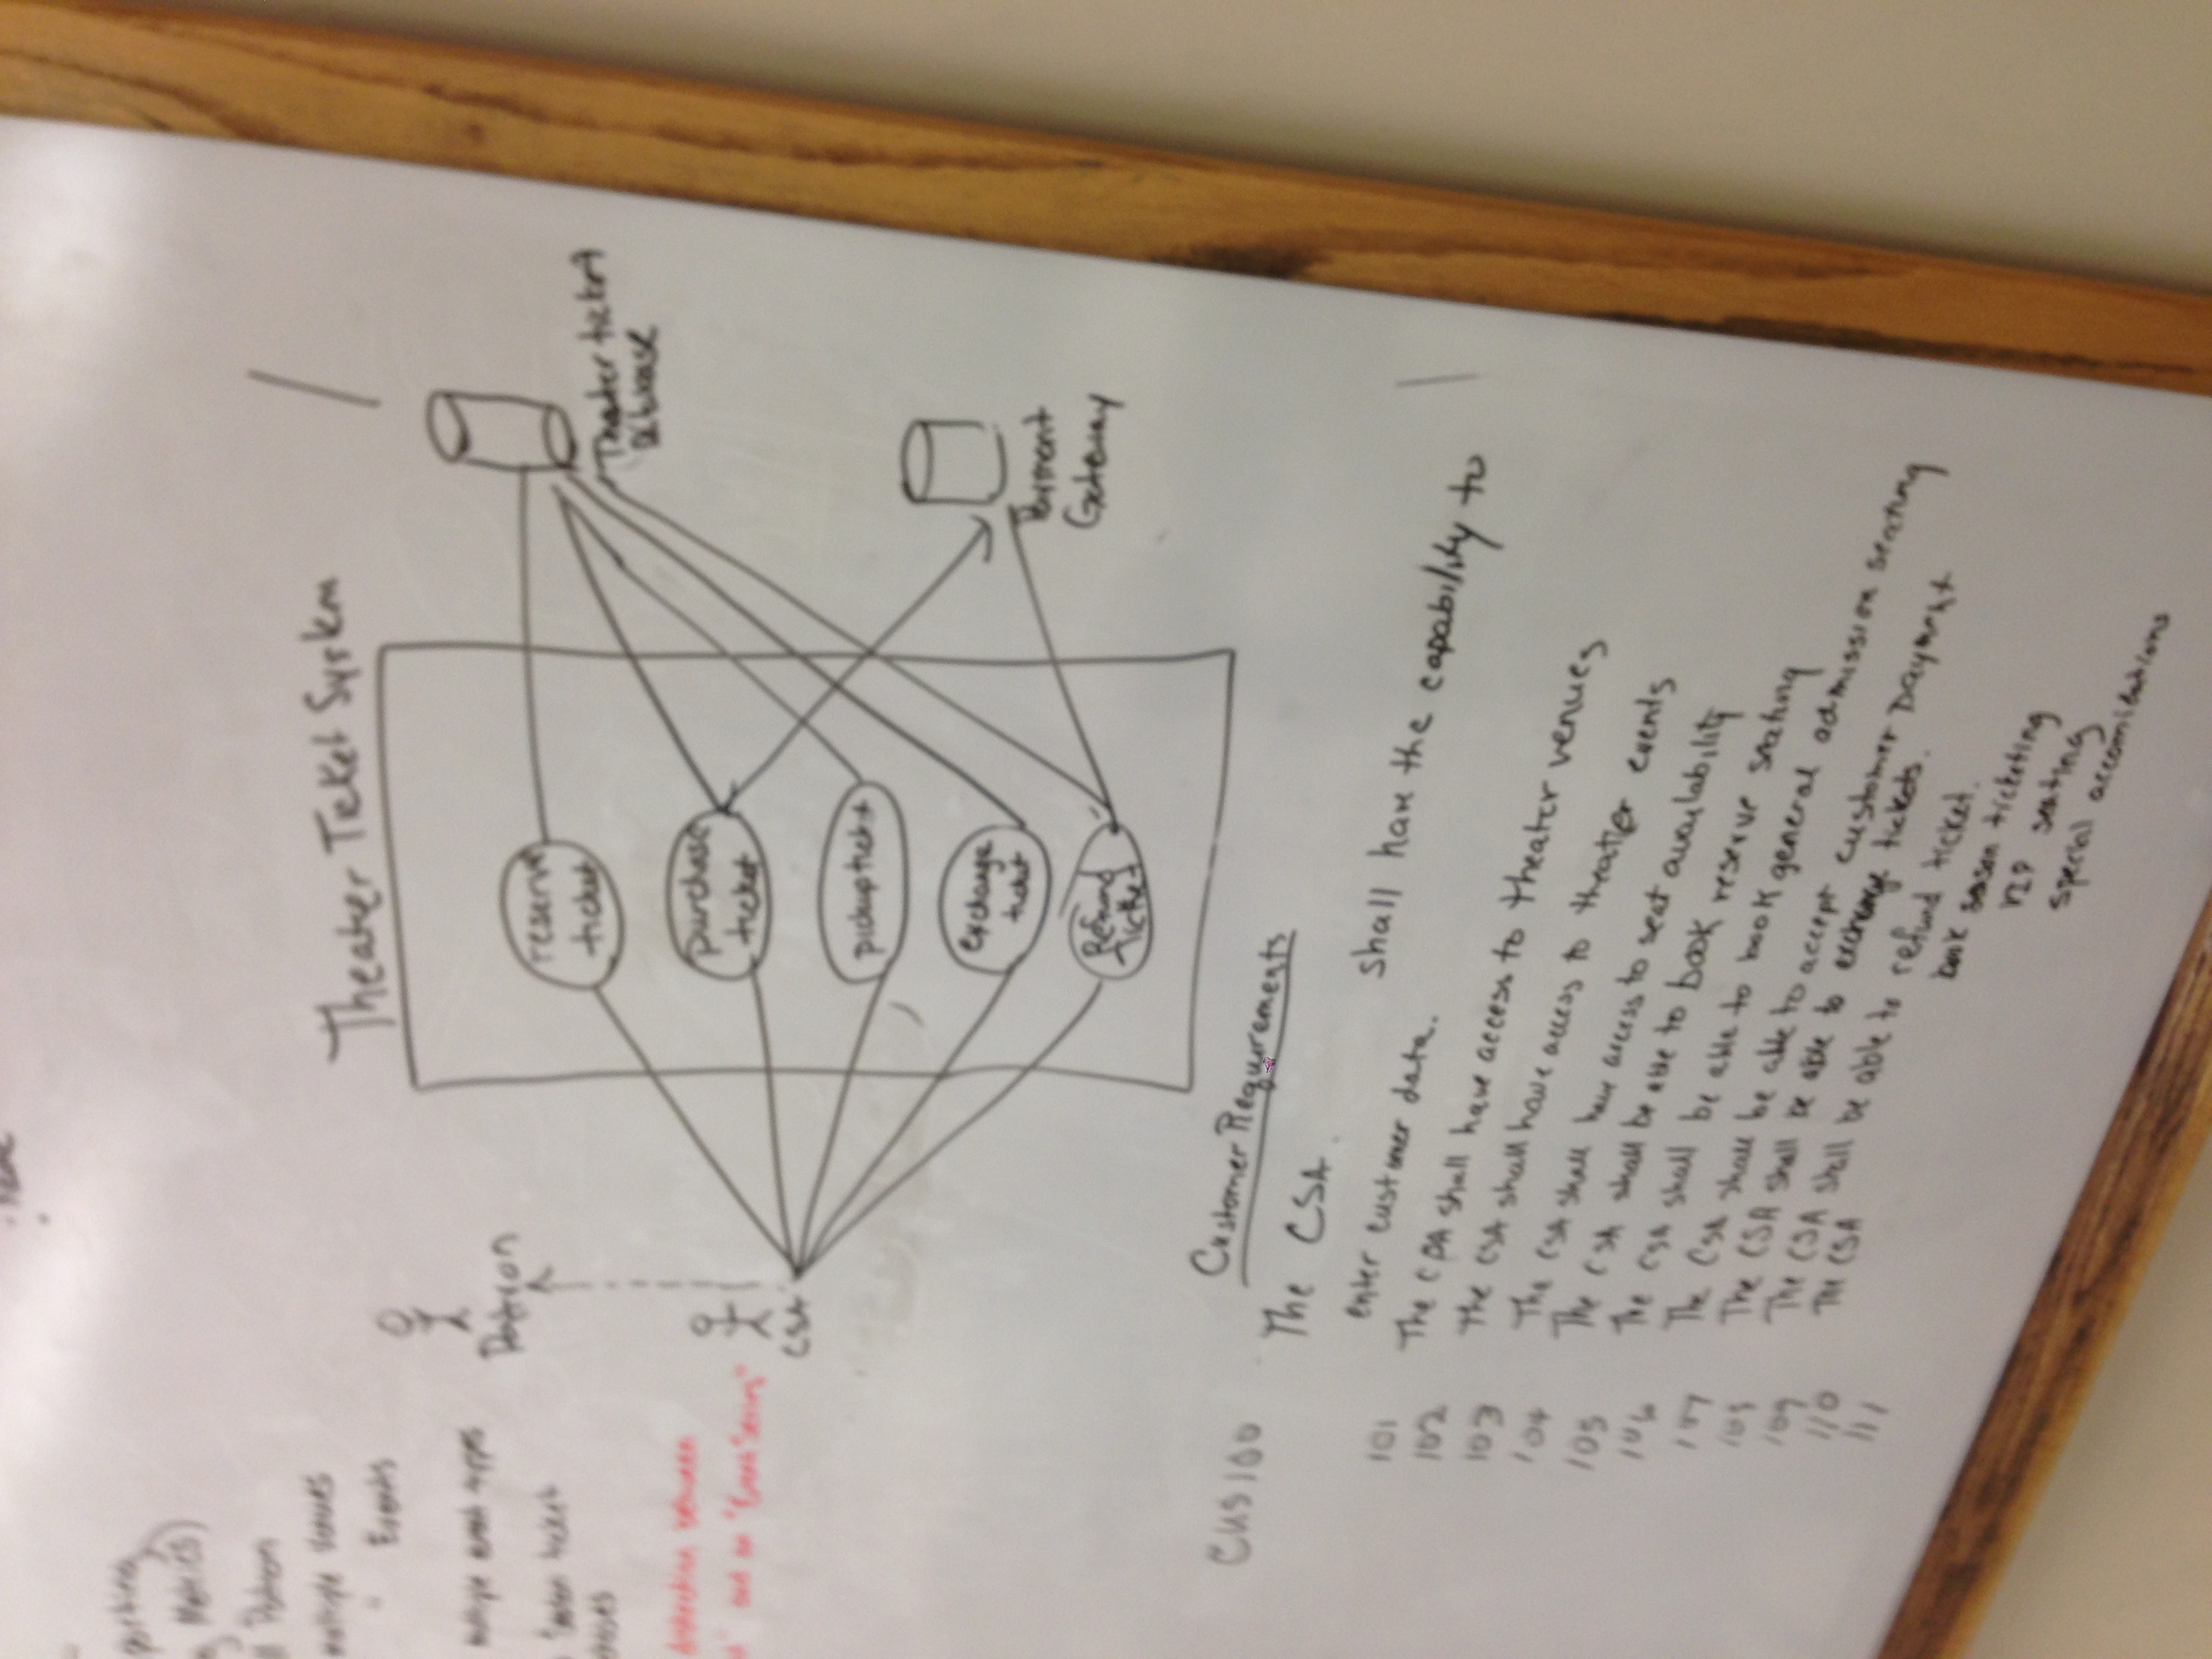 Metrics)
Patron
multiple Venues
Events
multiple event types
ticket
distinction between
and an "Event Series"
Theater Ticket System
Patron
CSA
reserve
ticket
purchase
ticket
pickup ticket
exchange
ticket
Refund
Ticket
Theater ticket
Payment
Gateway
Customer Requirements
CUS 100
The CSA
shall have the capability to
enter customer data.
101 The CSA shall have access to theater venues
102 The CSA shall have access to theater events
103 The CSA shall have access to seat availability
104 The CSA shall be able to book reserve seating
105 The CSA shall be able to book general admission seating
106 The CSA shall be able to accept customer payment
107 The CSA shall be able to exchange tickets.
108 The CSA shall be able to refund ticket.
109 The CSA book season ticketing
110 VIP seating
111 special accomidations